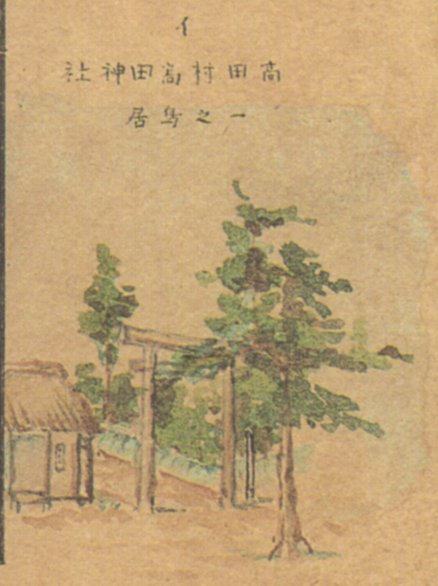 イ
高田村高田神社
一之鳥居